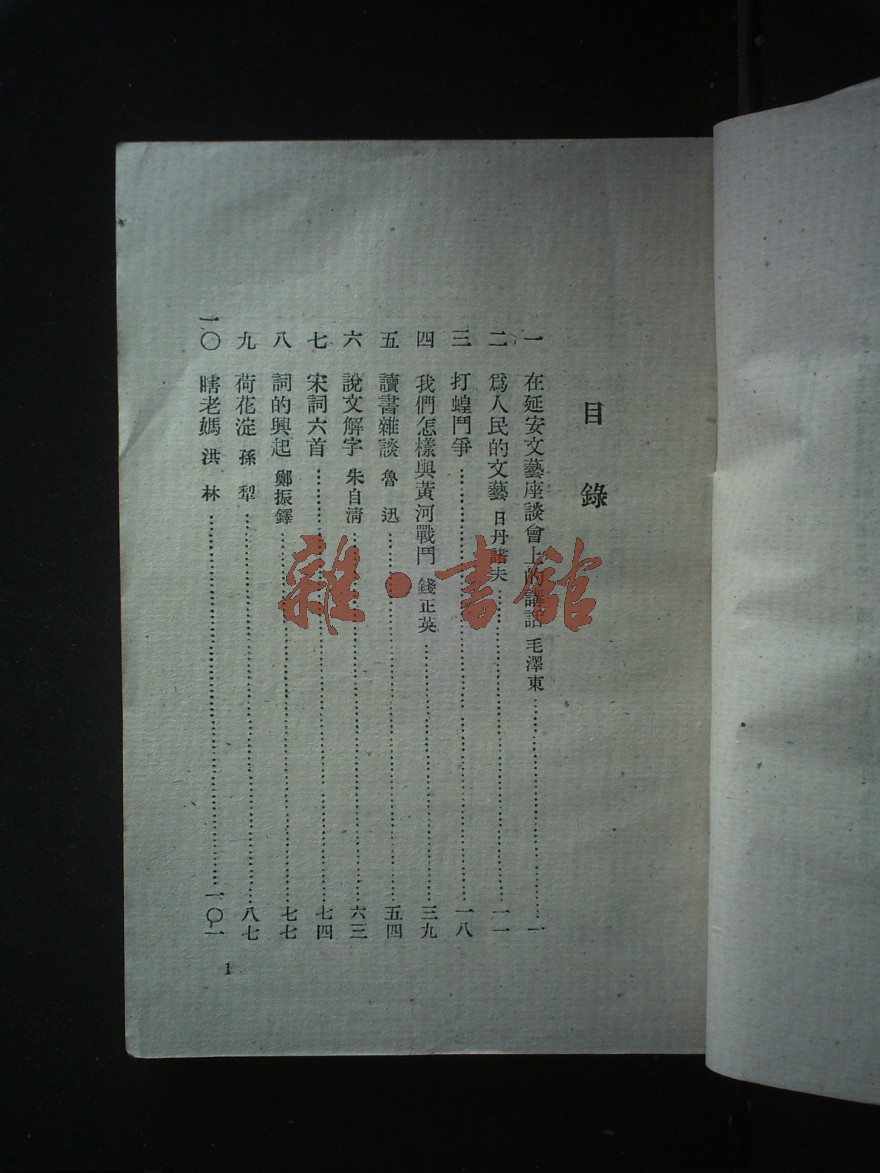 目錄
一 在延安文藝座談會上的講話 毛澤東 一
二 為人民的文藝 日丹諾夫 一一
三 打蝗鬥爭 一八
四 我們怎樣與黃河戰鬥 錢正英 三九
五 讀書雜談 魯迅 五四
六 說文解字 朱自清 六三
七 宋詞六首 七四
八 詞的興起 鄭振鐸 七七
九 荷花淀 孫犁 八七
一〇 瞎老媽 洪林 一〇一
1
雜·書館